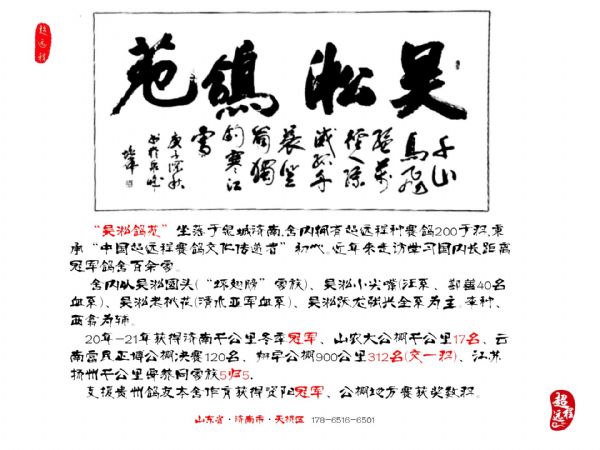 超远程
吴淞鸽苑
千山
鸟飞
绝万
径人踪
灭孤舟
蓑笠
翁独
钓寒江
雪
庚子深秋
“吴淞鸽苑”坐落于泉城济南,舍内拥有超远程种赛鸽200于羽,秉
承“中国超远程赛鸽文化传递者”初心。近年来走访学习国内长距离
冠军鸽舍百余家。
舍内以吴淞国头(“坏翅膀”雪族)、吴淞小尖嘴(汪系、郑善40名
血系)、吴淞老桃花(清水亚军血系)、吴淞跃龙强兴全系为主。李种、
西翁为辅。
20年-21年获得济南千公里冬季冠军、山农大公棚千公里17名、云
南富民正博公棚决赛120名、翔宇公棚900公里312名(交一羽)、江苏
扬州千公里同雪族5归5.
支援贵州鸽友本舍作育获得贵阳冠军、公棚地方赛获奖数羽。
山东省·济南市·天桥区 178-6516-6501
超远程